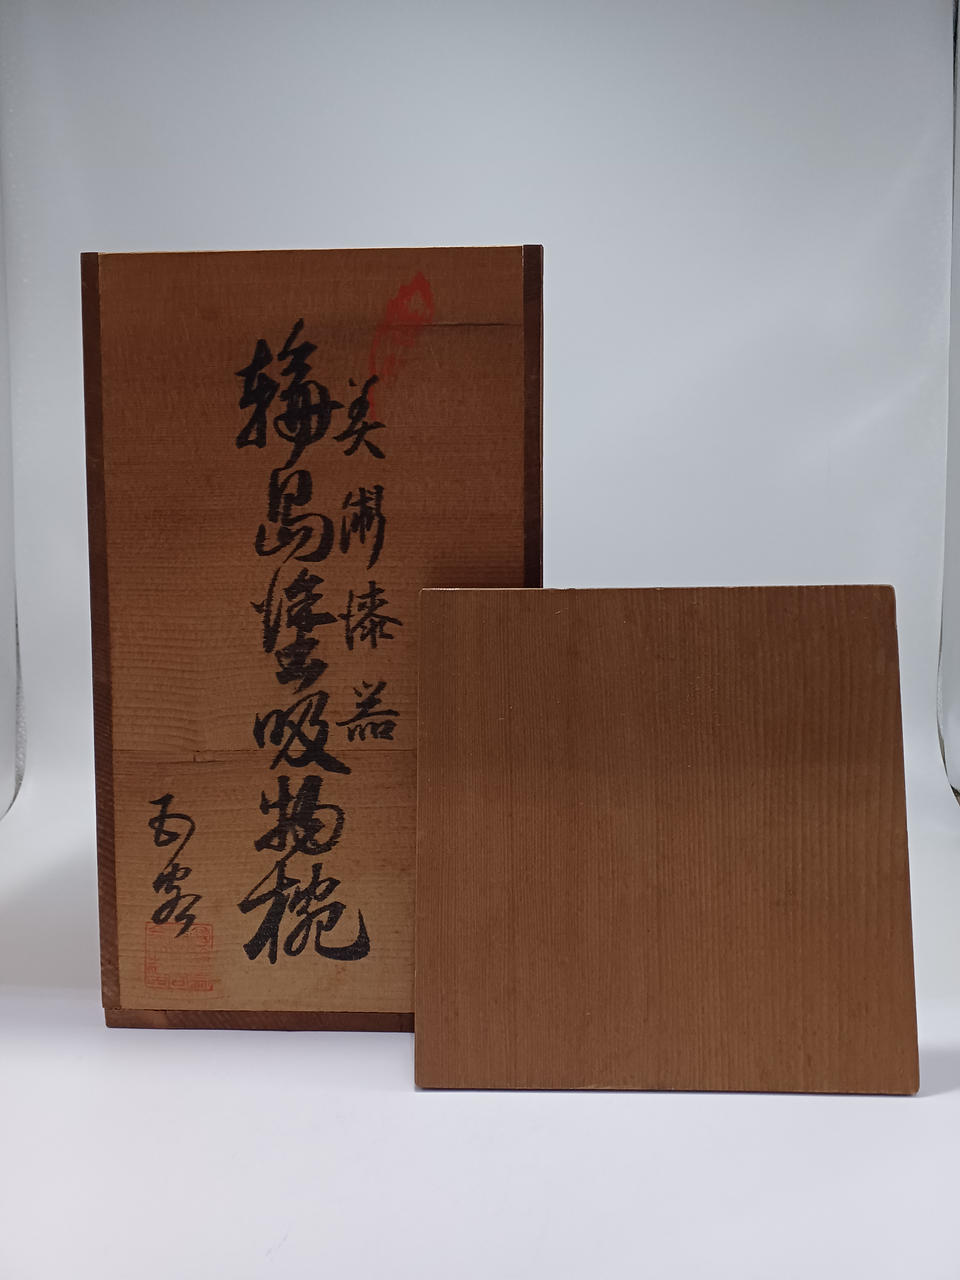 美術漆器
輪島塗吸物椀
五客